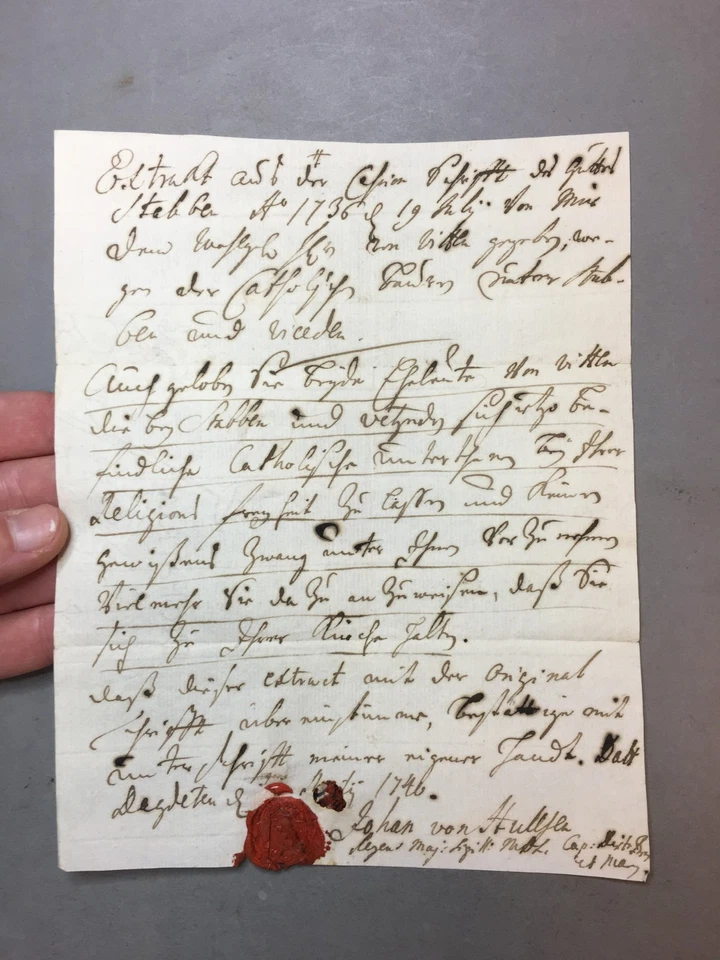 Extract aus der Cession Schrifft des Guttes
Stabben Ao 1736 d 19 July von Mir
dem Wohlgeb von Vitten gegeben, we-
gen der Catholischen Bauren unter Stab-
ben und
Auch geloben Sie beyde Eheleute von Vitten
die bey Stabben und sich itzo be-
findliche Catholische unterthanen bey Ihrer
Religions freyheit zu lassen und keinen
gewißens zwang unter Ihnen vor zu nehmen
Vielmehr Sie dazu anzuweisen, daß Sie
sich zu Ihrer Kirche halten.
daß dieser extract mit der original
schrifft über einstimme, bestättige mit
unterschrifft meiner eigener handt. Datt
Dagdeten d 1746.
Johan von Hulsen
Maj: